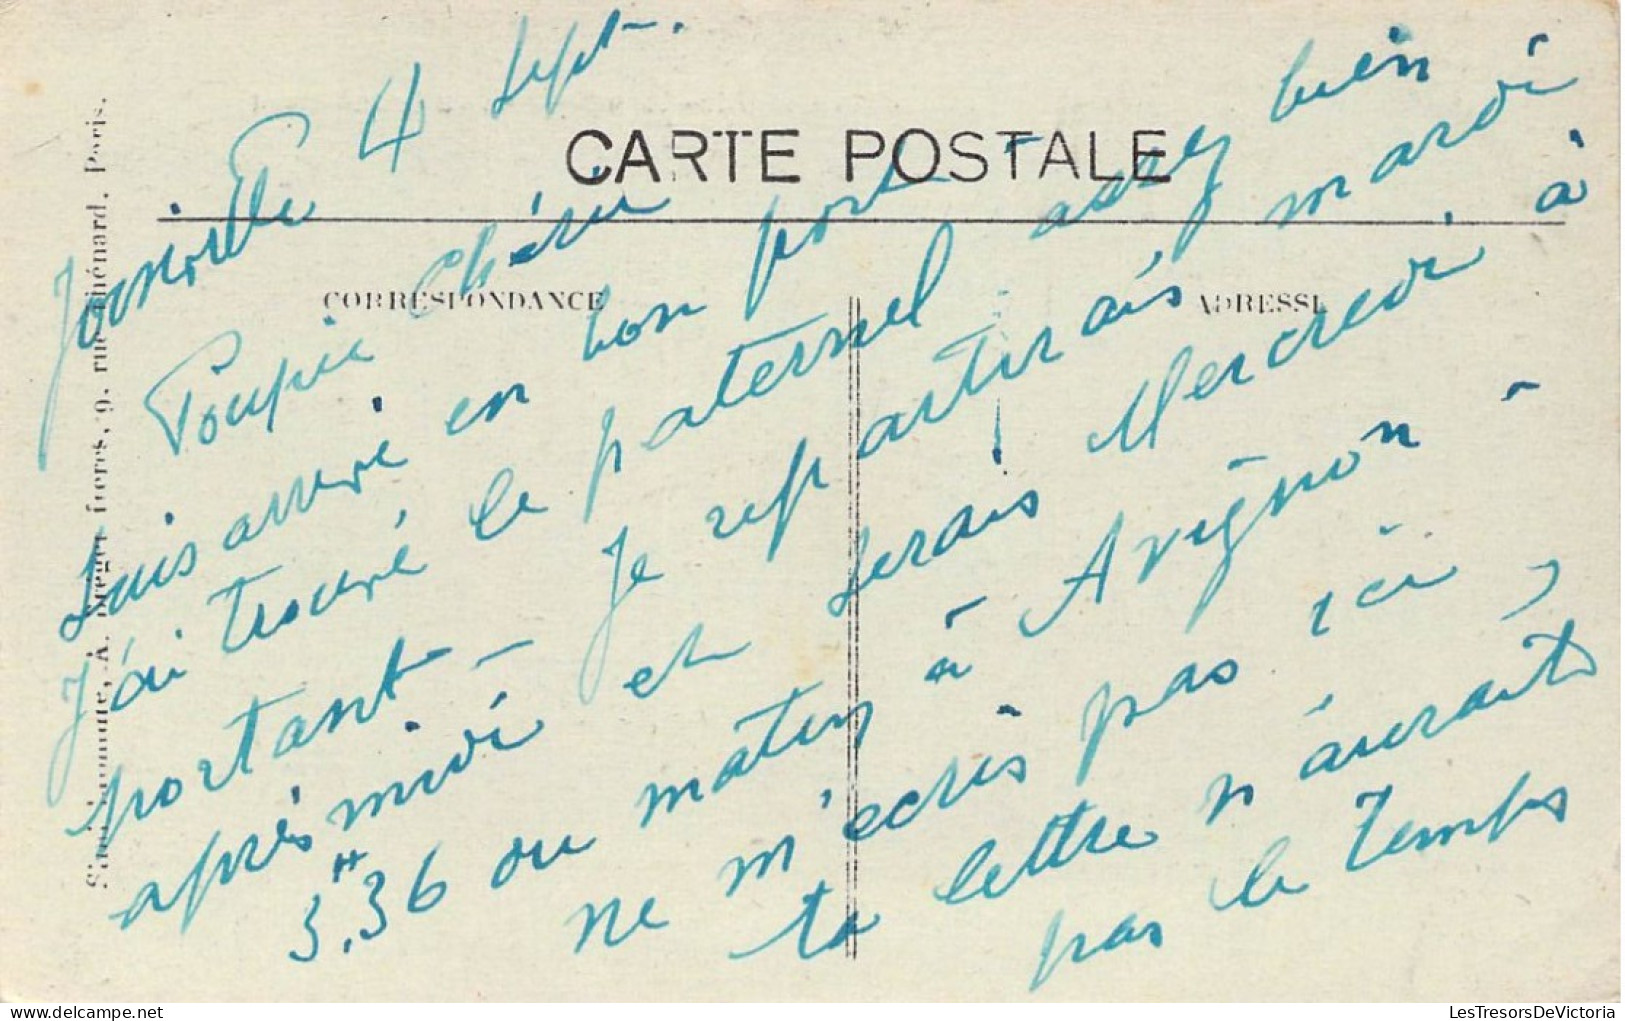 Joinville 4 Sept.
CARTE POSTALE
CORRESPONDANCE
ADRESSE
Poupée Chérie
Suis arrivé en bon port
J'ai trouvé le paternel assez bien
portant — Je repartirais mardi
après midi et serais Mercredi à
3H.36 du matin à Avignon —
ne m'écris pas ici,
ta lettre n'aurait
pas le temps
A. Bréger frères, 9, rue Thénard, Paris.
LesTresorsDeVictoria
LesTresorsDeVictoria.com